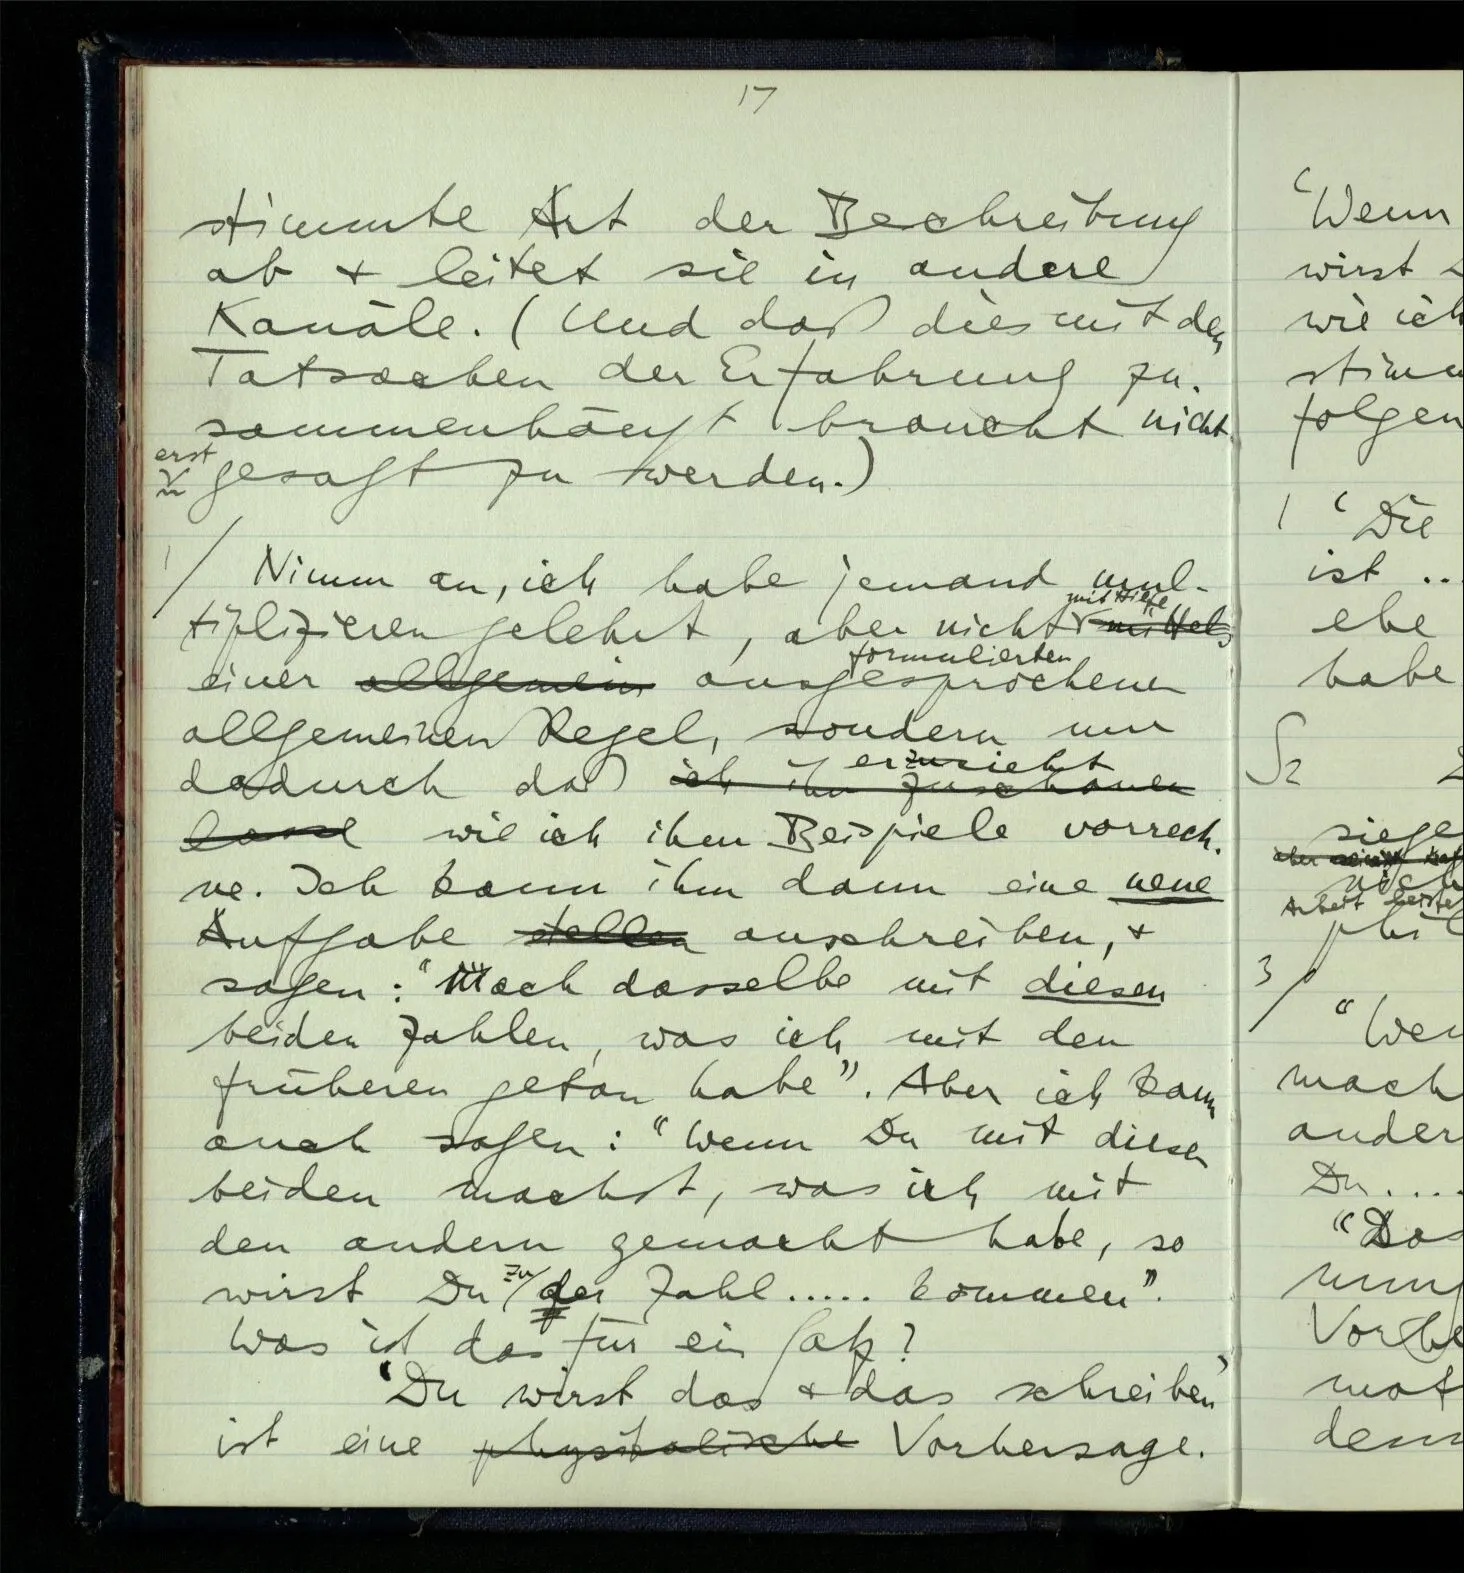 17
stimmte Art der Beschreibung
ab + leitet sie in andere
Kanäle. (Und daß dies mit den
Tatsachen der Erfahrung zu-
sammenhängt braucht nicht
erst
gesagt zu werden.)
1/ Nimm an, ich habe jemand mul-
mit Hilfe
tiplizieren gelehrt, aber nicht mittels
formulierten
einer allgemein ausgesprochenen
allgemeinen Regel, sondern nur
er zusieht
dadurch daß ich ihn zuschauen
lasse wie ich ihm Beispiele vorrech-
ne. Ich kann ihm dann eine neue
Aufgabe stellen anschreiben, +
sagen: “Mach dasselbe mit diesen
beiden Zahlen, was ich mit den
früheren getan habe”. Aber ich kann
auch sagen: “Wenn Du mit diesen
beiden machst, was ich mit
den andern gemacht habe, so
zu
wirst Du der Zahl..... kommen”.
Was ist das für ein Satz?
‘Du wirst das + das schreiben’
ist eine physikalische Vorhersage.
‘Wenn
wirst
wie ich
folgen
1 ‘Die
ist ..
ehe
habe
S2
siege
3/
“Wen
mach
ander
Du....
“Das
nung
Vorhe
mat
denn